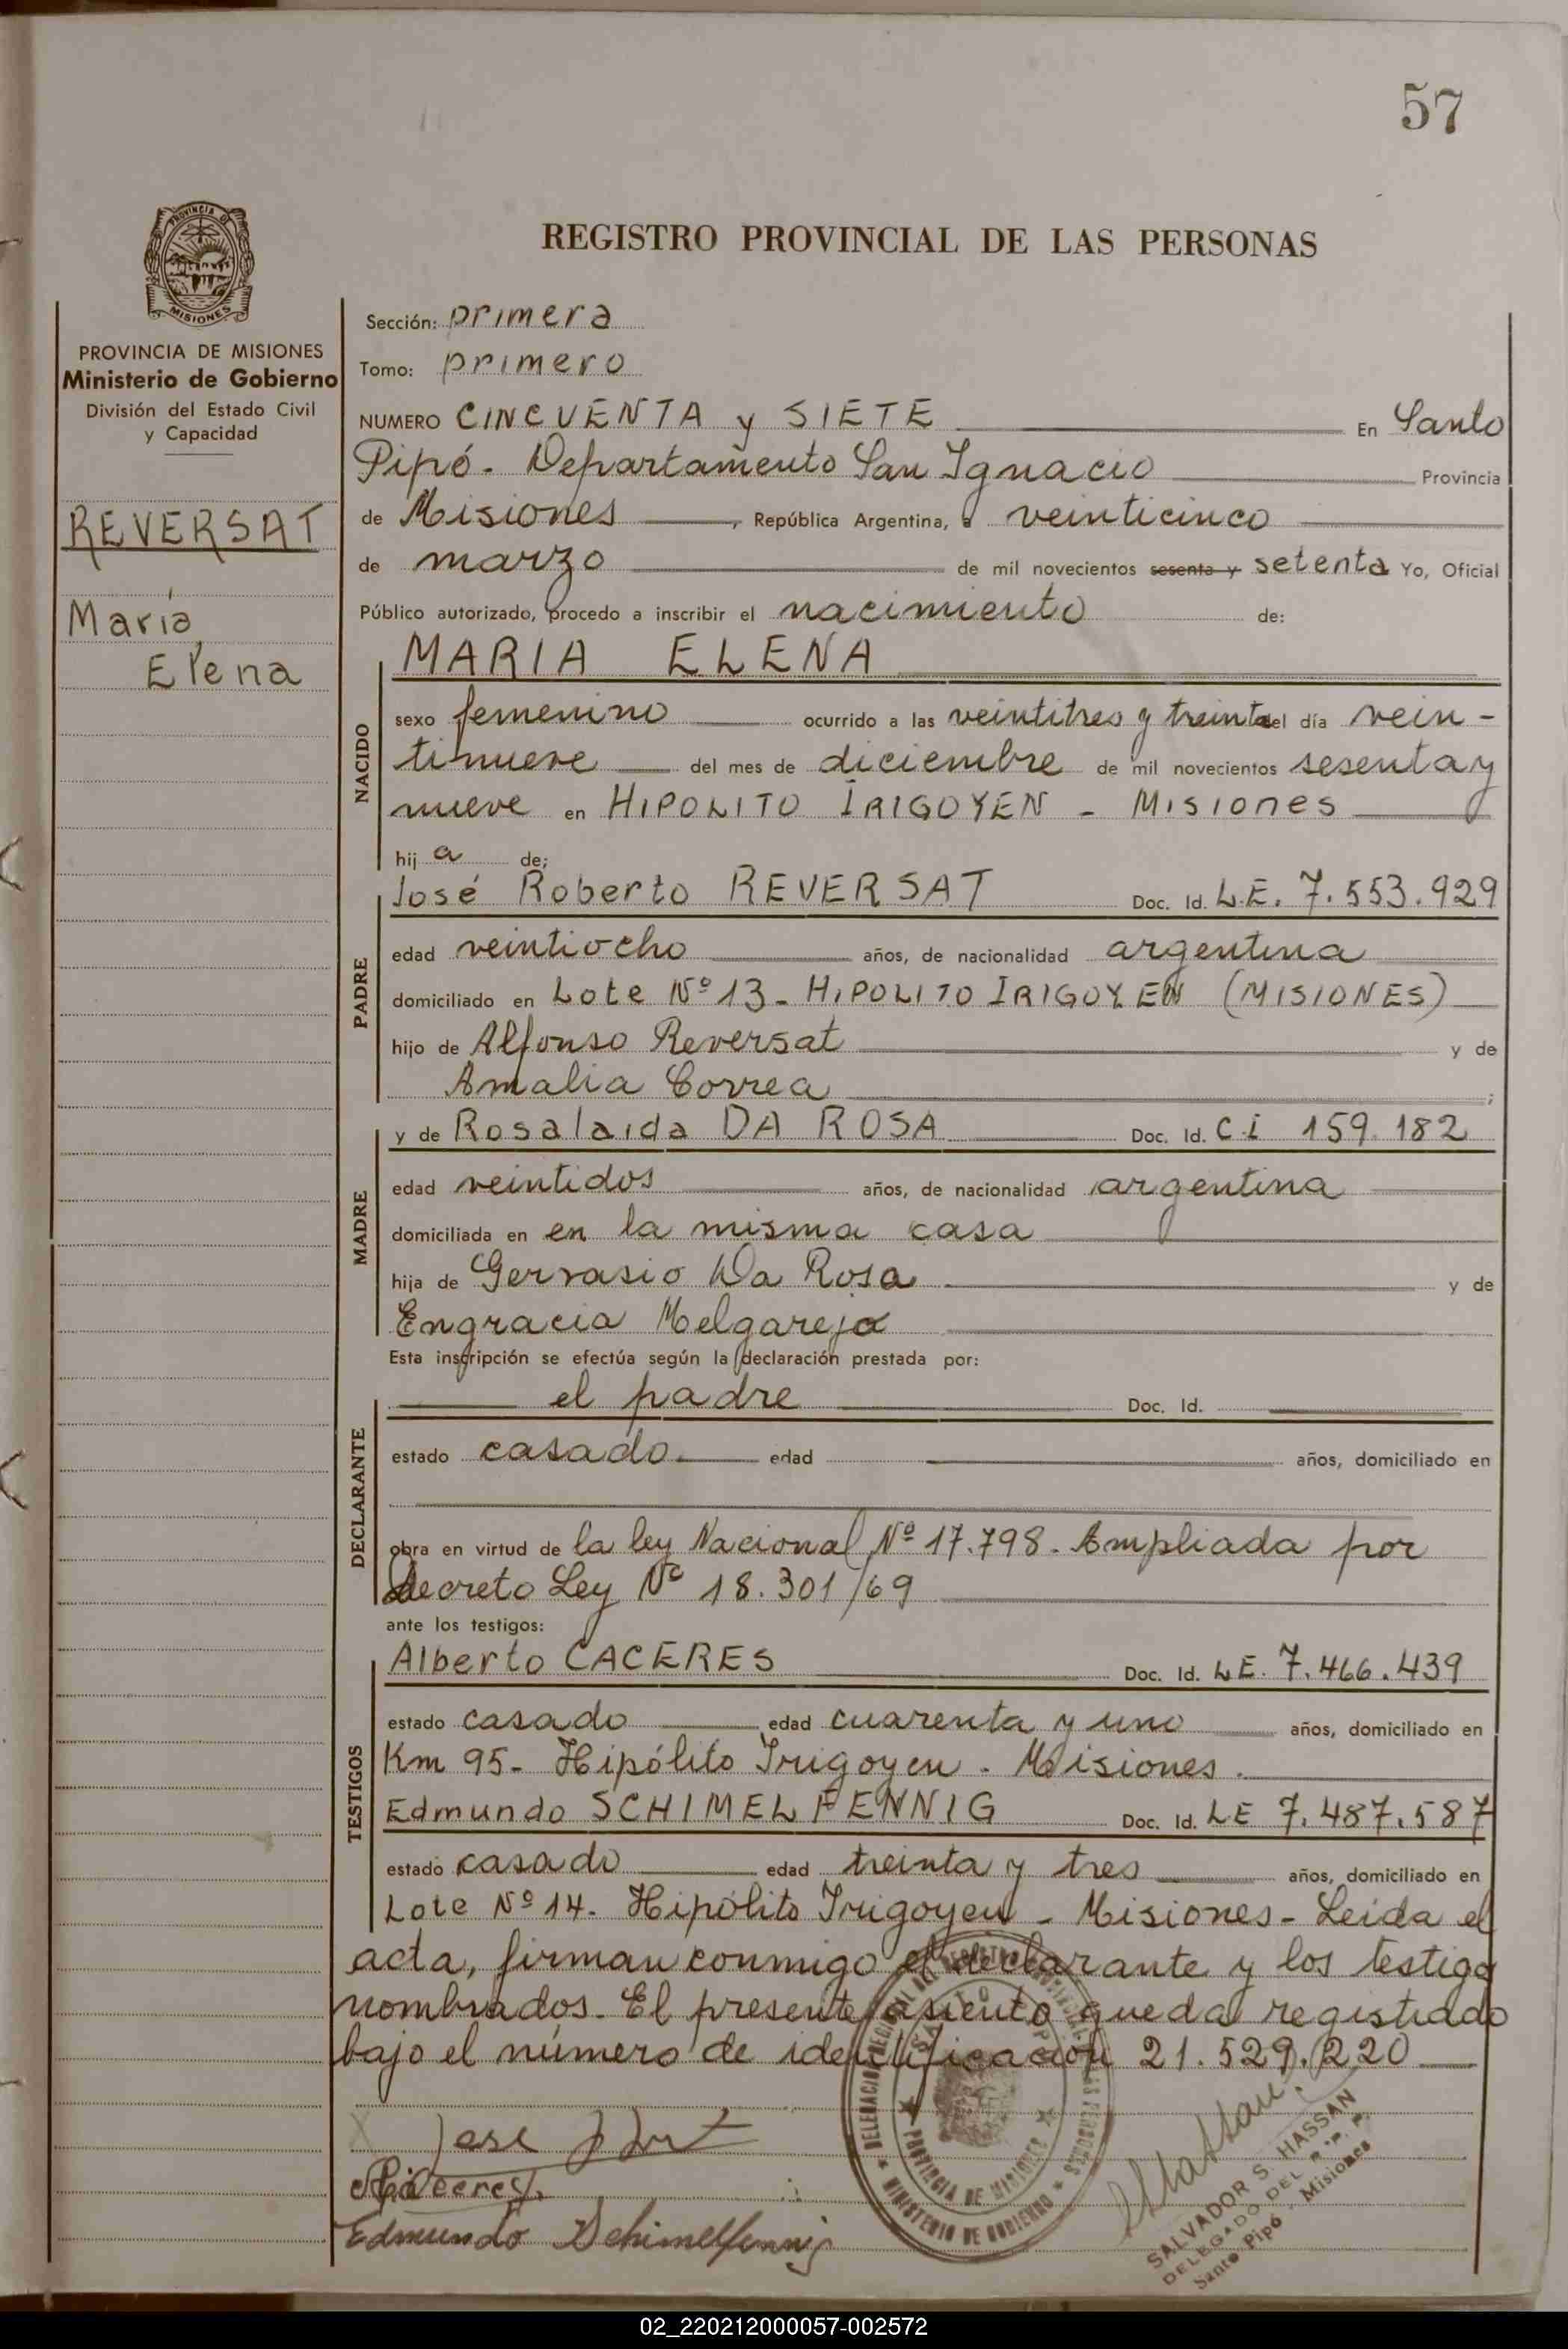 57
PROVINCIA DE
MISIONES
REGISTRO PROVINCIAL DE LAS PERSONAS
PROVINCIA DE MISIONES
Ministerio de Gobierno
División del Estado Civil
y Capacidad
REVERSAT
María
Elena
Sección: primera
Tomo: primero
NUMERO CINCUENTA y SIETE En Santo
Pipó - Departamento San Ignacio Provincia
de Misiones, República Argentina, a veinticinco
de marzo de mil novecientos sesenta y setenta Yo, Oficial
Público autorizado, procedo a inscribir el nacimiento de:
MARIA ELENA
NACIDO
sexo femenino ocurrido a las veintitres y treinta del día vein-
tinueve del mes de diciembre de mil novecientos sesenta y
nueve en HIPOLITO IRIGOYEN - Misiones
hij a de;
PADRE
José Roberto REVERSAT Doc. Id. L.E. 7.553.929
edad veintiocho años, de nacionalidad argentina
domiciliado en Lote Nº 13 - HIPOLITO IRIGOYEN (MISIONES)
hijo de Alfonso Reversat y de
Amalia Correa ;
MADRE
y de Rosalaida DA ROSA Doc. Id. C.i 159.182
edad veintidos años, de nacionalidad argentina
domiciliada en en la misma casa
hija de Gervasio Da Rosa y de
Engracia Melgarejo
Esta inscripción se efectúa según la declaración prestada por:
DECLARANTE
el padre Doc. Id.
estado casado. edad años, domiciliado en
obra en virtud de la ley Nacional Nº 17.798 - Ampliada por
decreto Ley Nº 18.301/69
ante los testigos:
TESTIGOS
Alberto CACERES Doc. Id. L.E. 7.466.439
estado casado edad cuarenta y uno años, domiciliado en
Km 95 - Hipólito Irigoyen - Misiones.
Edmundo SCHIMELFENNIG Doc. Id. LE 7.487.587
estado casado edad treinta y tres años, domiciliado en
Lote Nº 14 - Hipólito Irigoyen - Misiones - Leida el
acta, firman conmigo el declarante y los testigo
nombrados. El presente asiento queda registrado
bajo el número de identificación 21.529.220
Jose
Caceres
Edmundo Schimelfennig
PROVINCIA DE MISIONES
MINISTERIO DE GOBIERNO
SALVADOR S. HASSAN
DELEGADO DEL R.P.P.
Santo Pipó - Misiones
02_220212000057-002572